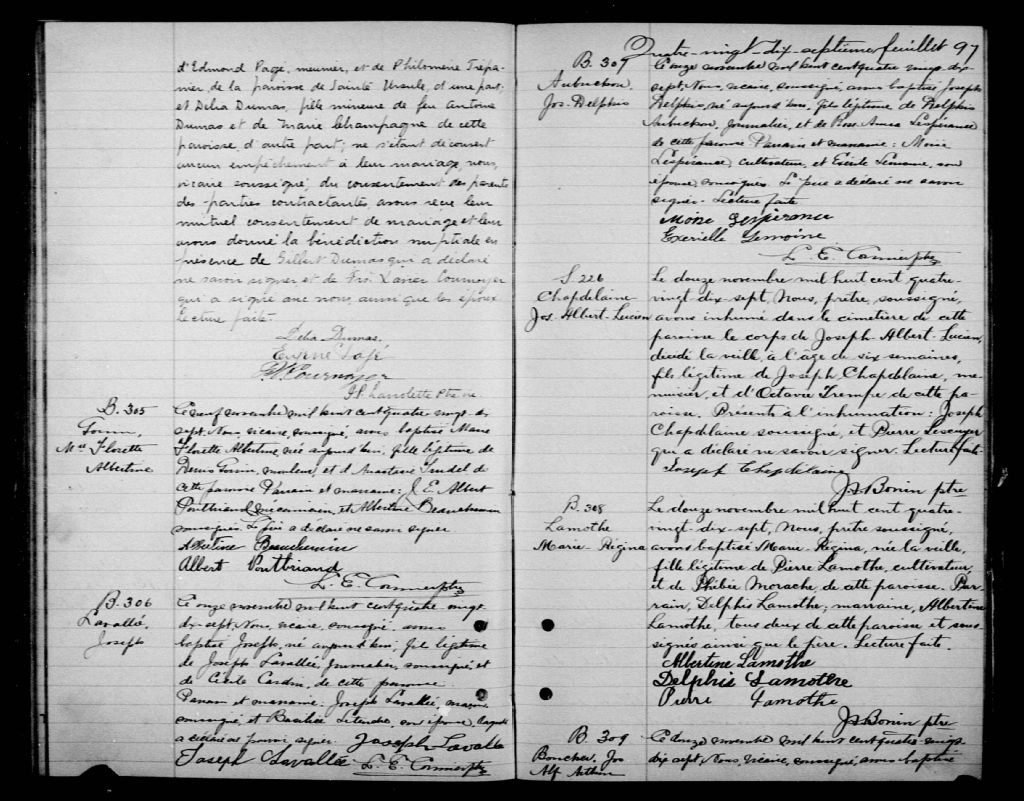 d'Edmond Pagé, meunier, et de Philomène Trépa-
nier, de la paroisse de Sainte Ursule, d'une part;
et Délia Dumas, fille mineure de feu Antoine
Dumas et de Marie Champagne de cette
paroisse, d'autre part; ne s'étant découvert
aucun empêchement à leur mariage, nous,
vicaire soussigné, du consentement des parents
des parties contractantes, avons reçu leur
mutuel consentement de mariage et leur
avons donné la bénédiction nuptiale en
présence de Gilbert Dumas qui a déclaré
ne savoir signer et de Frs. Xavier Cournoyer
qui a signé avec nous, ainsi que les époux
Lecture faite.
Délia Dumas.
Eugène Pagé
Cournoyer
Ptre vic.
B. 305
M. Florette
Albertine
Le neuf novembre mil huit cent quatre vingt dix
sept, Nous, vicaire, soussigné, avons baptisé Marie
Florette Albertine, née aujourd'hui, fille légitime de
mouleur, et d'Anastasie de
cette paroisse Parrain et marraine: J. E. Albert
Pontbriand mécanicien, et Albertine Beauchemin
soussignés. Le père a déclaré ne savoir signer
Albertine Beauchemin
Albert Pontbriand
L. E. Cormier ptre
B. 306
Lavallée,
Joseph
Le onze novembre mil huit cent quatre vingt
dix sept, Nous, vicaire, soussigné, avons
baptisé Joseph, né aujourd'hui, fils légitime
de Joseph Lavallée, journalier, soussigné et
de Cécile Cardin, de cette paroisse.
Parrain et marraine: Joseph Lavallée, maçon
soussigné, et Basilice Letendre, son épouse, laquelle
a déclaré ne pouvoir signer. Joseph Lavallée
Joseph Lavallée L. E. Cormier ptre
Quatre-vingt-dix-septième feuillet 97
B. 307
Aubuchon,
Jos. Delphis
Le onze novembre mil huit cent quatre vingt dix
sept, Nous, vicaire, soussigné, avons baptisé Joseph
Delphis, né aujourd'hui, fils légitime de Delphis
Aubuchon, journalier, et de Rose Anna Lespérance
de cette paroisse Parrain et marraine: Moïse
Lespérance, cultivateur, et Lemoine, son
épouse, soussignés. Le père a déclaré ne savoir
signer. Lecture faite
Moïse Lesperance
Exerille Lemoine
L. E. Cormier ptre
S 226
Chapdelaine
Jos. Albert-Lucien
Le douze novembre mil huit cent quatre-
vingt dix sept, Nous, prêtre, soussigné,
avons inhumé dans le cimetière de cette
paroisse le corps de Joseph-Albert-Lucien,
décédé la veille, à l'âge de six semaines,
fils légitime de Joseph Chapdelaine, me-
nuisier, et d'Octavie Trempe de cette pa-
roisse. Présents à l'inhumation: Joseph
Chapdelaine soussigné, et Pierre
qui a déclaré ne savoir signer. Lecture faite.
Joseph Chapdelaine
Bonin ptre
B. 308
Lamothe
Marie-Régina
Le douze novembre mil huit cent quatre-
vingt-dix-sept, Nous, prêtre soussigné,
avons baptisé Marie-Régina, née la veille,
fille légitime de Pierre Lamothe, cultivateur,
et de Phébée Morache, de cette paroisse. Par-
rain, Delphis Lamothe, marraine, Albertine
Lamothe, tous deux de cette paroisse et sous-
signés ainsi que le père. Lecture faite.
Albertine Lamothe
Delphis Lamothe
Pierre Lamothe
Bonin ptre
B. 309
Boucher, Jos
Alf. Arthur
Le douze novembre mil huit cent quatre vingt
dix sept, Nous, vicaire, soussigné, avons baptisé